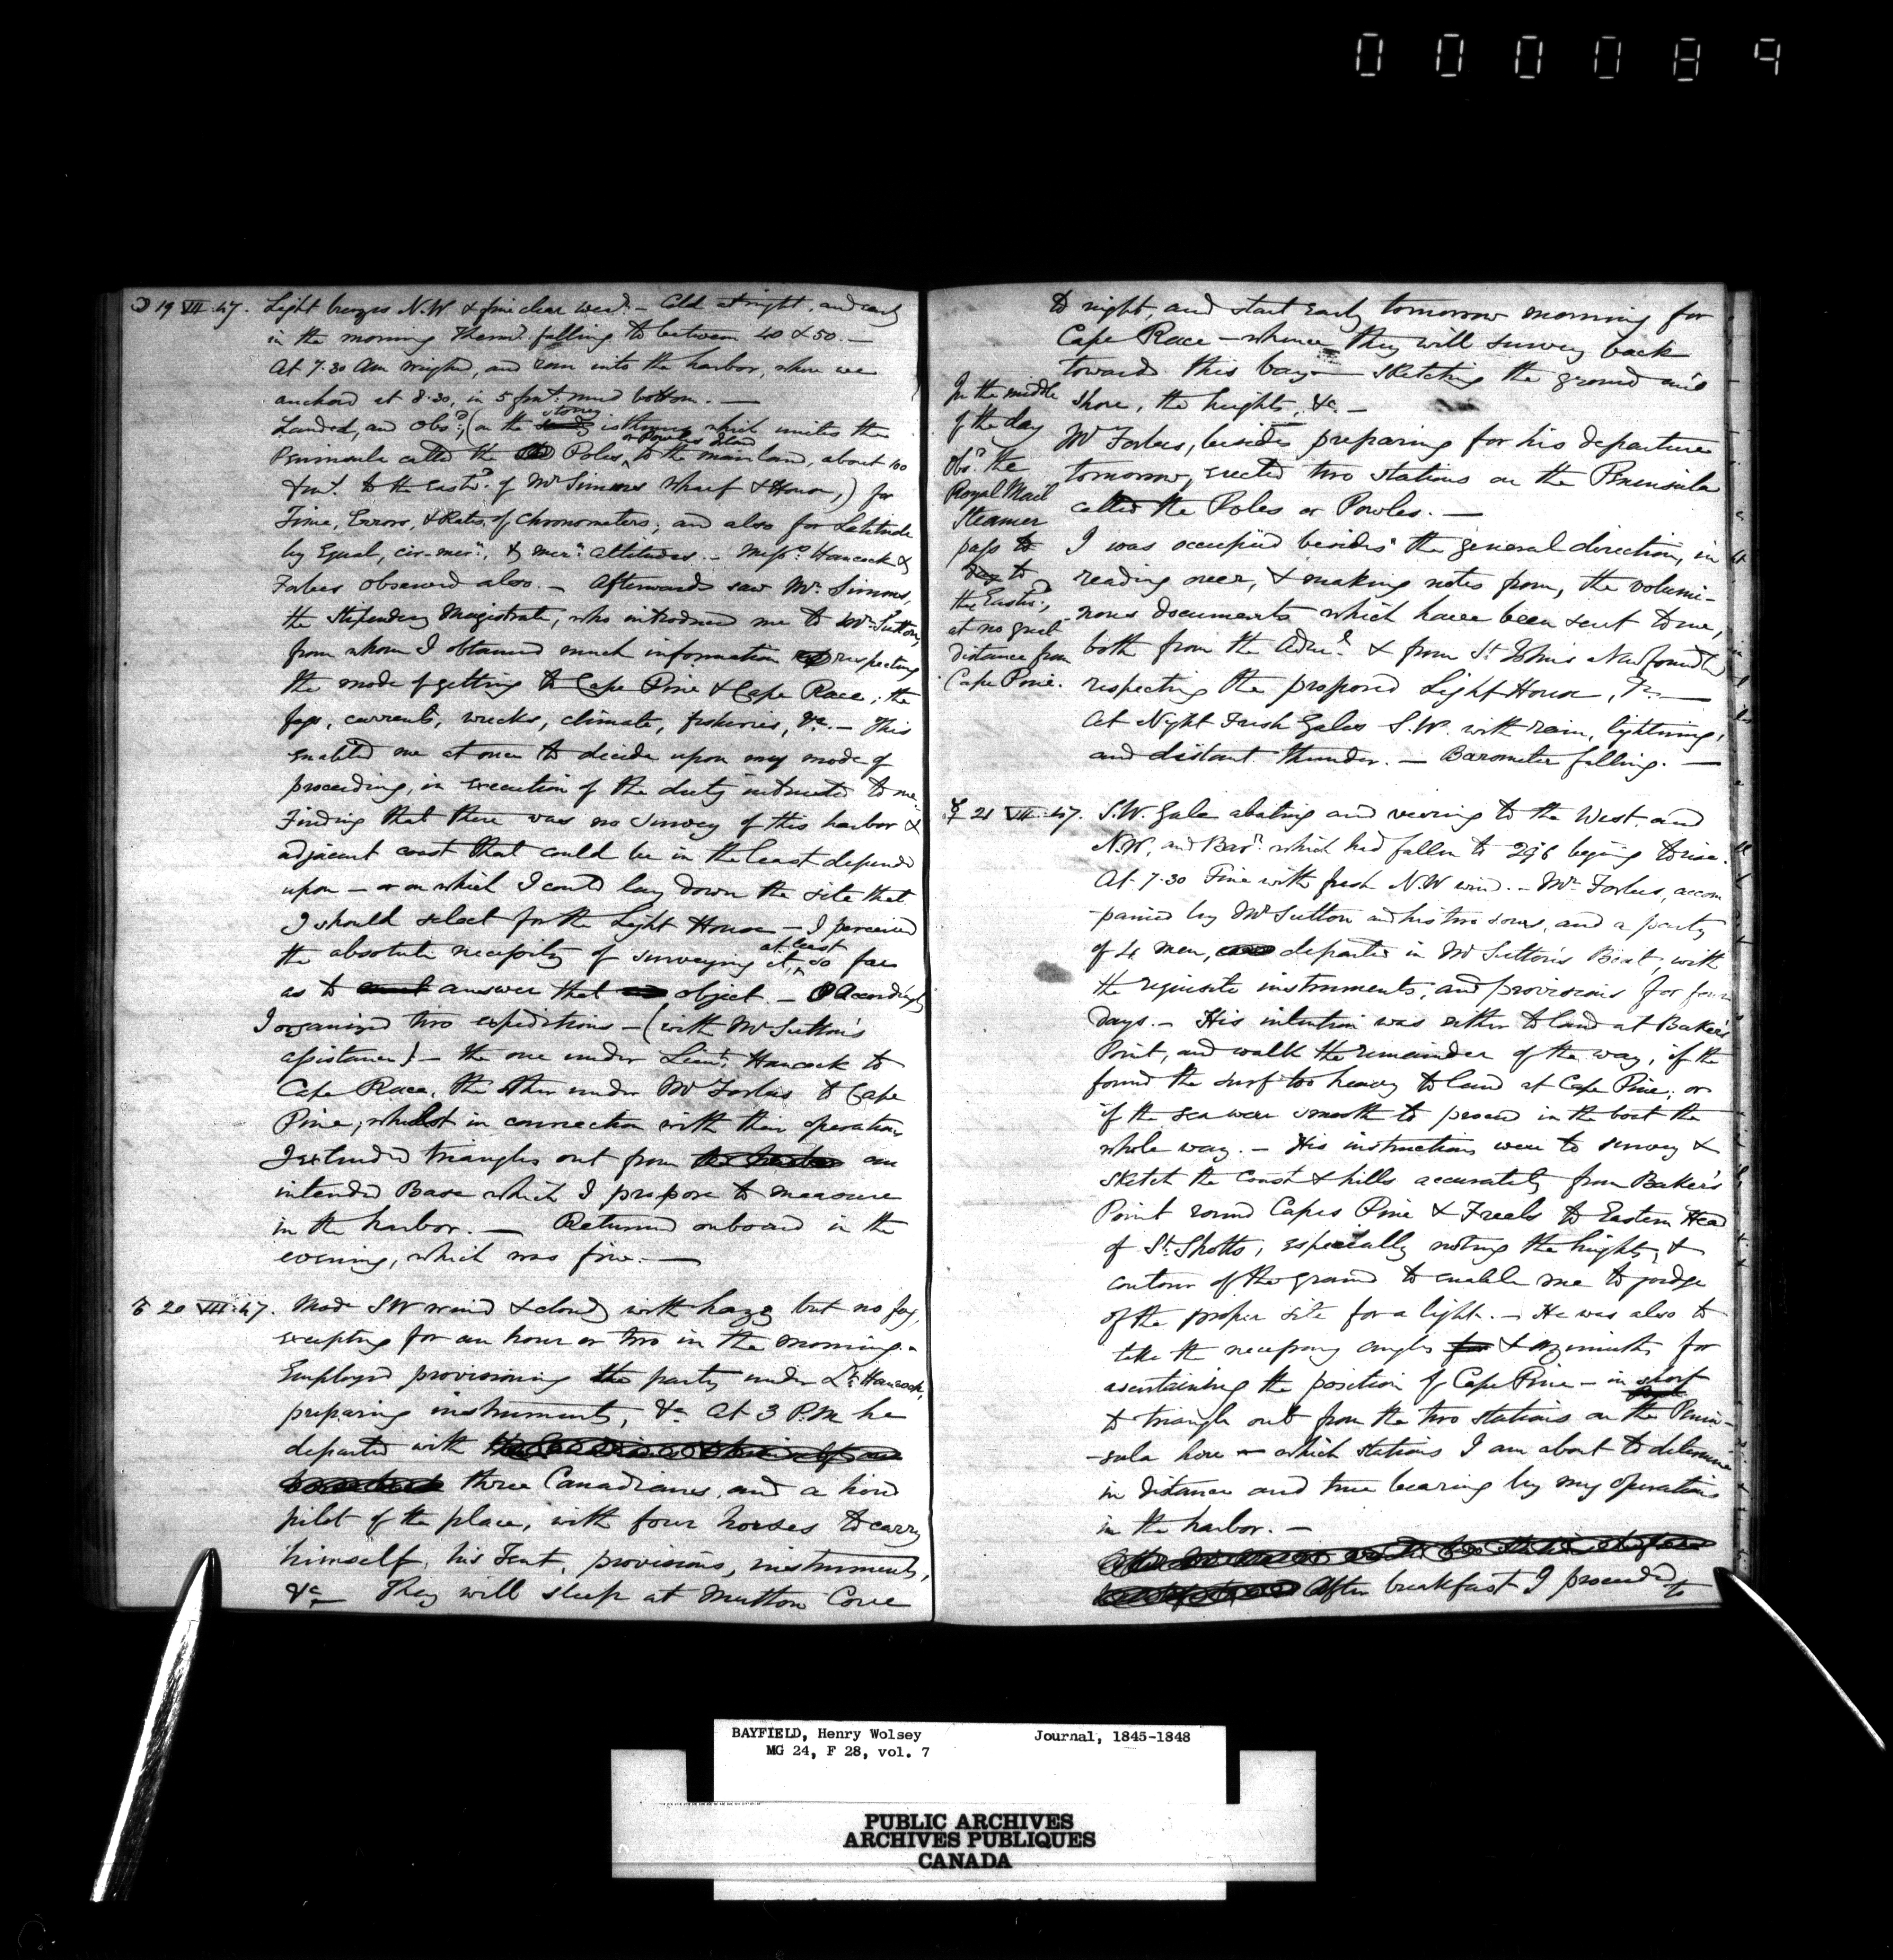 000089
☽ 19 VII .47. Light breezes N.W & fine clear wear. - Cold at night, and early
in the morning Thermr. falling to between 40 & 50. —
At 7.30 Am weighed, and ran into the harbor, where we
anchored at 8.30, in 5 fms. mud bottom. —
Landed, and obsd., (on the stoney isthmus which unites the
Peninsula called the Poles or Powles Island to the mainland, about 100
to the Eastd. of Mr Simms wharf & House,) for
Time, Errors, & Rates, of Chronometers; and also for Latitude
by Equal, cir-mern., & mern. Altitudes. - Messrs. Hancock &
Forbes observed also. - Afterwards saw Mr. Simms,
the Stipendiary Magistrate, who introduced me to Mr Sutton,
from whom I obtained much information respecting
the mode of getting to Cape Pine & Cape Race; the
fogs, currents, wrecks, climate, fisheries, &c. - This
enabled me at once to decide upon my mode of
proceeding, in execution of the duty intrusted to me.
Finding that there was no survey of this harbor &
adjacent coast that could be in the least depended
upon - or on which I could lay down the site that
I should select for the Light House - I perceived
the absolute necessity of surveying it, at least so far
as to answer that object - Accordingly
I organized two expeditions - (with Mr Sutton's
assistance) - the one under Lieut. Hancock to
Cape Race, the other under Mr Forbes to Cape
Pine, whilst in connection with their operations
I extended triangles out from an
intended Base which I propose to measure
in the harbor. — Returned onboard in the
evening, which was fine. —
♂ 20 VII .47. Modr SW wind & cloudy with haze but no fog,
excepting for an hour or two in the morning.
Employed provisioning the party under Lt. Hancock,
preparing instruments, &c. At 3 P.M. he
departed with
three Canadians, and a hired
pilot of the place, with four horses to carry
himself, his Tent, provisions, instruments,
&c — They will sleep at Mutton Cove
to night, and start early tomorrow morning for
Cape Race - whence they will survey back
towards this bay - sketching the ground and
shore, the heights, &c. -
In the middle
of the day
obsd. the
Royal Mail
Steamer
pass to
the Eastd.,
at no great
distance from
Cape Pine.
Mr Forbes, besides preparing for his departure
tomorrow, erected two stations on the Peninsula
called the Poles or Powles. —
I was occupied besides the general direction, in
reading over, & making notes from, the volumi-
nous documents which have been sent to me,
both from the Adml. & from St. Johns Newfoundld
respecting the proposed Light House, &c. —
At Night Fresh Gales S.W. with rain, lightning,
and distant thunder. — Barometer falling. —
☿ 21 VII .47. S.W. Gale abating and veering to the West and
N.W, and Barr. which had fallen to 29.6 beging to rise.
At 7.30 Fine with fresh N.W wind. - Mr. Forbes, accom
-panied by Mr Sutton and his two sons, and a party
of 4 men, departed in Mr Sutton's Boat, with
the requisite instruments, and provisions for four
days. - His intention was either to land at Baker's
Point, and walk the remainder of the way, if he
found the surf too heavy to land at Cape Pine; or
if the sea were smooth to proceed in the boat the
whole way. - His instructions were to survey &
sketch the coast & hills accurately from Baker's
Point round Capes Pine & Freels to Eastern Head
of St. Shotts, especially noting the heights, &
contour of the ground to enable me to judge
of the proper site for a light. - He was also to
take the necessary angles & azimuths for
ascertaining the position of Cape Pine - in short
to triangle out from the two stations on the Penin-
-sula here - which stations I am about to determine
in distance and true bearing by my operations
in the harbor. -
After breakfast I proceeded to
BAYFIELD, Henry Wolsey Journal, 1845-1848
MG 24, F 28, vol. 7
PUBLIC ARCHIVES
ARCHIVES PUBLIQUES
CANADA